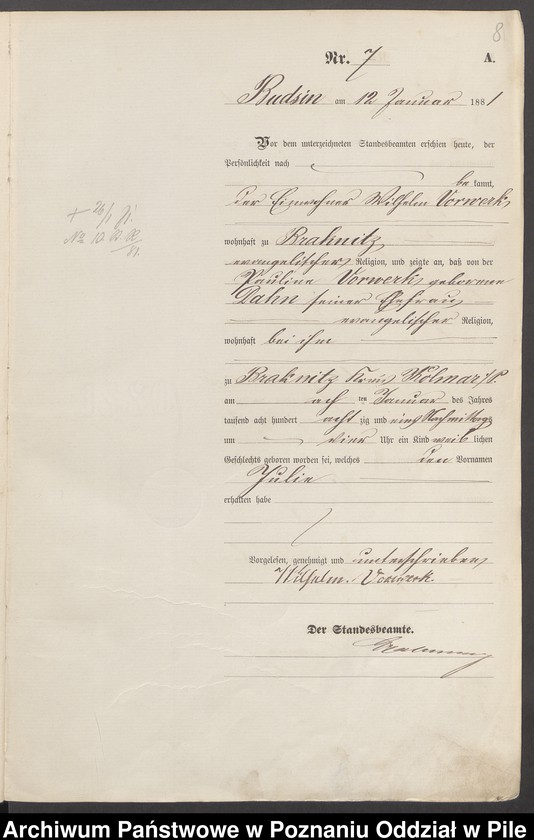 8
Nr. 7 A.
Budsin am 12 Januar 1881
Vor dem unterzeichneten Standesbeamten erschien heute, der
Persönlichkeit nach
be kannt,
der Einwohner Wilhelm Vorwerk
wohnhaft zu Braknitz
evangelischer Religion, und zeigte an, daß von der
Pauline Vorwerk geborenen
Dahn seiner Ehefrau
evangelischer Religion,
wohnhaft bei ihm
zu Braknitz Kreis Kolmar i/P.
am ach ten Januar des Jahres
tausend acht hundert acht zig und eins Nachmittags
um vier Uhr ein Kind weib lichen
Geschlechts geboren worden sei, welches den Vornamen
Julie
erhalten habe
Vorgelesen, genehmigt und unterschrieben
Wilhelm Vorwerk.
Der Standesbeamte.
+ 26/1 81.
No. 10
81.
Archiwum Państwowe w Poznaniu Oddział w Pile